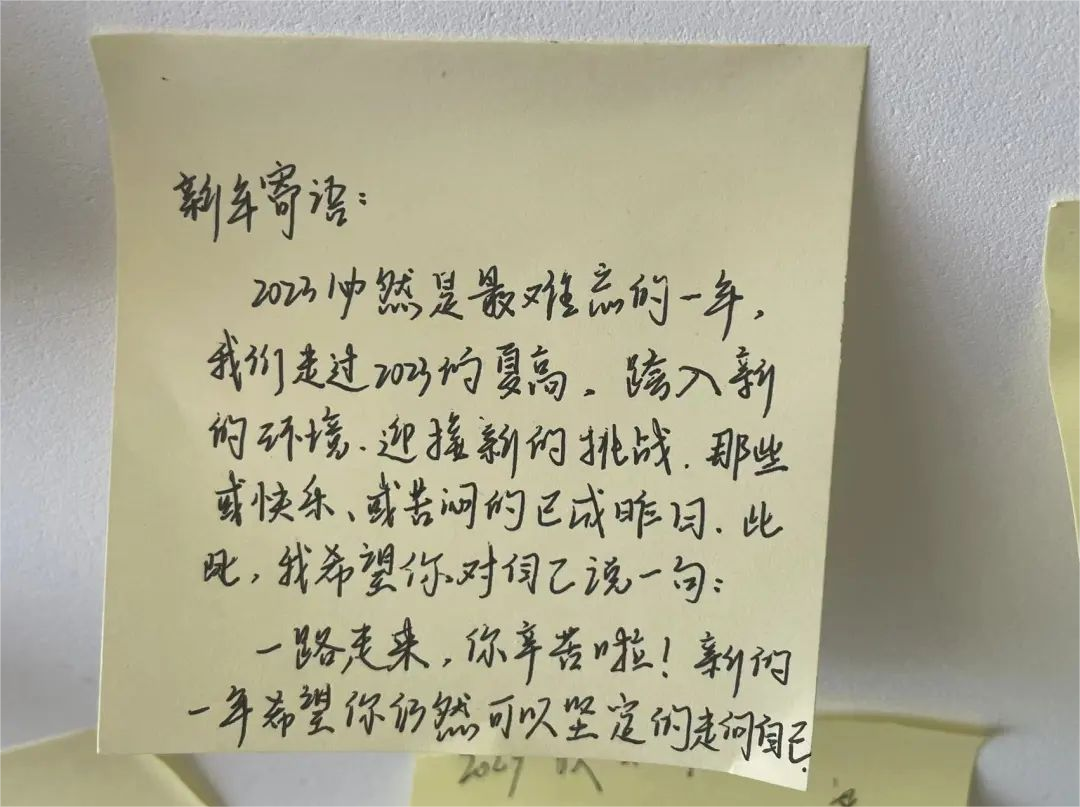 新年寄语：
2023仍然是最难忘的一年，
我们走过2023的夏高，跨入新
的环境.迎接新的挑战.那些
或快乐、或苦闷的已成昨日.此
，我希望你对自己说一句：
一路走来，你辛苦啦！新的
一年希望你仍然可以坚定的走向自己.
2024